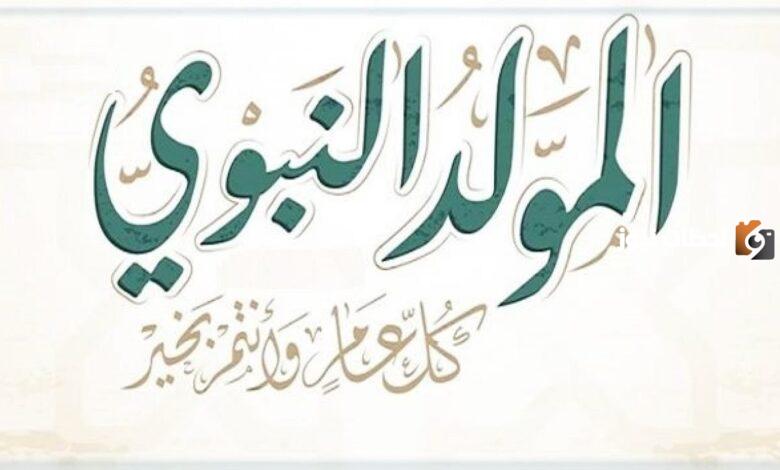 المَوّلدُ النَبَوْيّ
كُلُّ عَامٍ وَأَنْتُمْ بَخَيْرٍ